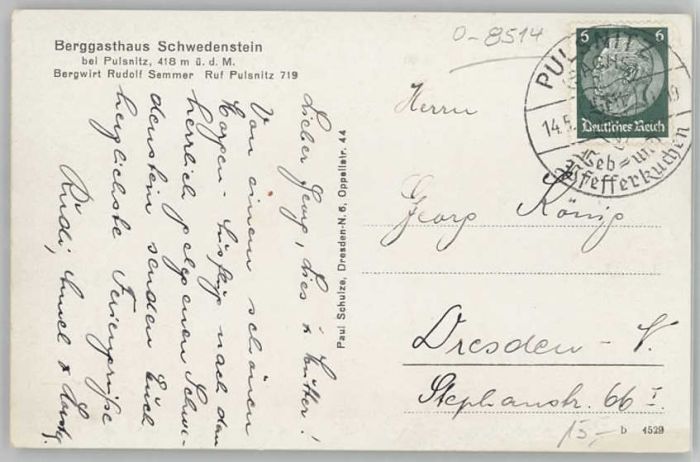 Berggasthaus Schwedenstein
bei Pulsnitz, 418 m ü. d. M.
Bergwirt Rudolf Semmer Ruf Pulsnitz 719
Lieber Georg, Lies & Mutter!
Von einem schönen
Ausflug nach dem
herrlich gelegenen Schwe-
denstein senden Euch
herzlichste Feriengrüße
Rudi,
Paul Schulze, Dresden-N. 6, Oppellstr. 44
O-8514
PULSNITZ
(SACHS)
14.5.
Leb= und
Pfefferkuchen
6 6
Deutsches Reich
Herrn
Georg König
Dresden - N.
Stephanstr. 66 I.
15,-
b 1529